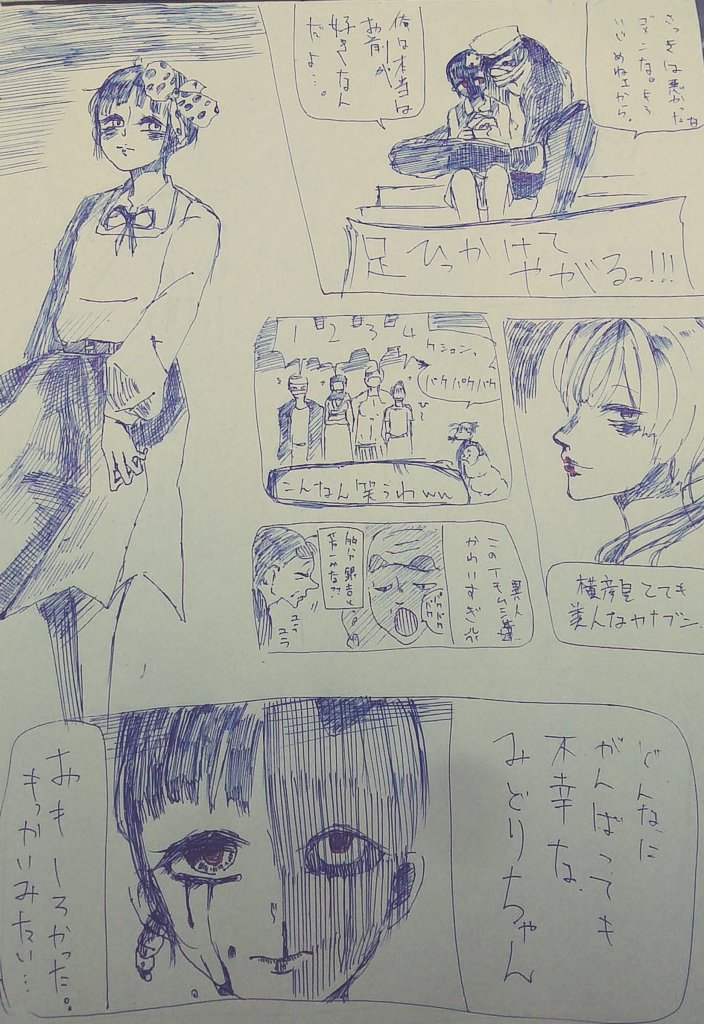 さっきは悪かったな
ゴメンな。もう
いじめねェから。
俺は本当は
お前が
好きなん
だよ…。
足ひっかけて
やがるっ!!!
1 2 3 4
クションっ
パクパクパク
こんなん笑うわww
横顔見てても
美人なカナブン
このイモムシ異人
かわいすぎ
パクパク
ユラ
ユラ
どんなに
がんばっても
不幸な
みどりちゃん
おもしろかった。
もっかいみたい…